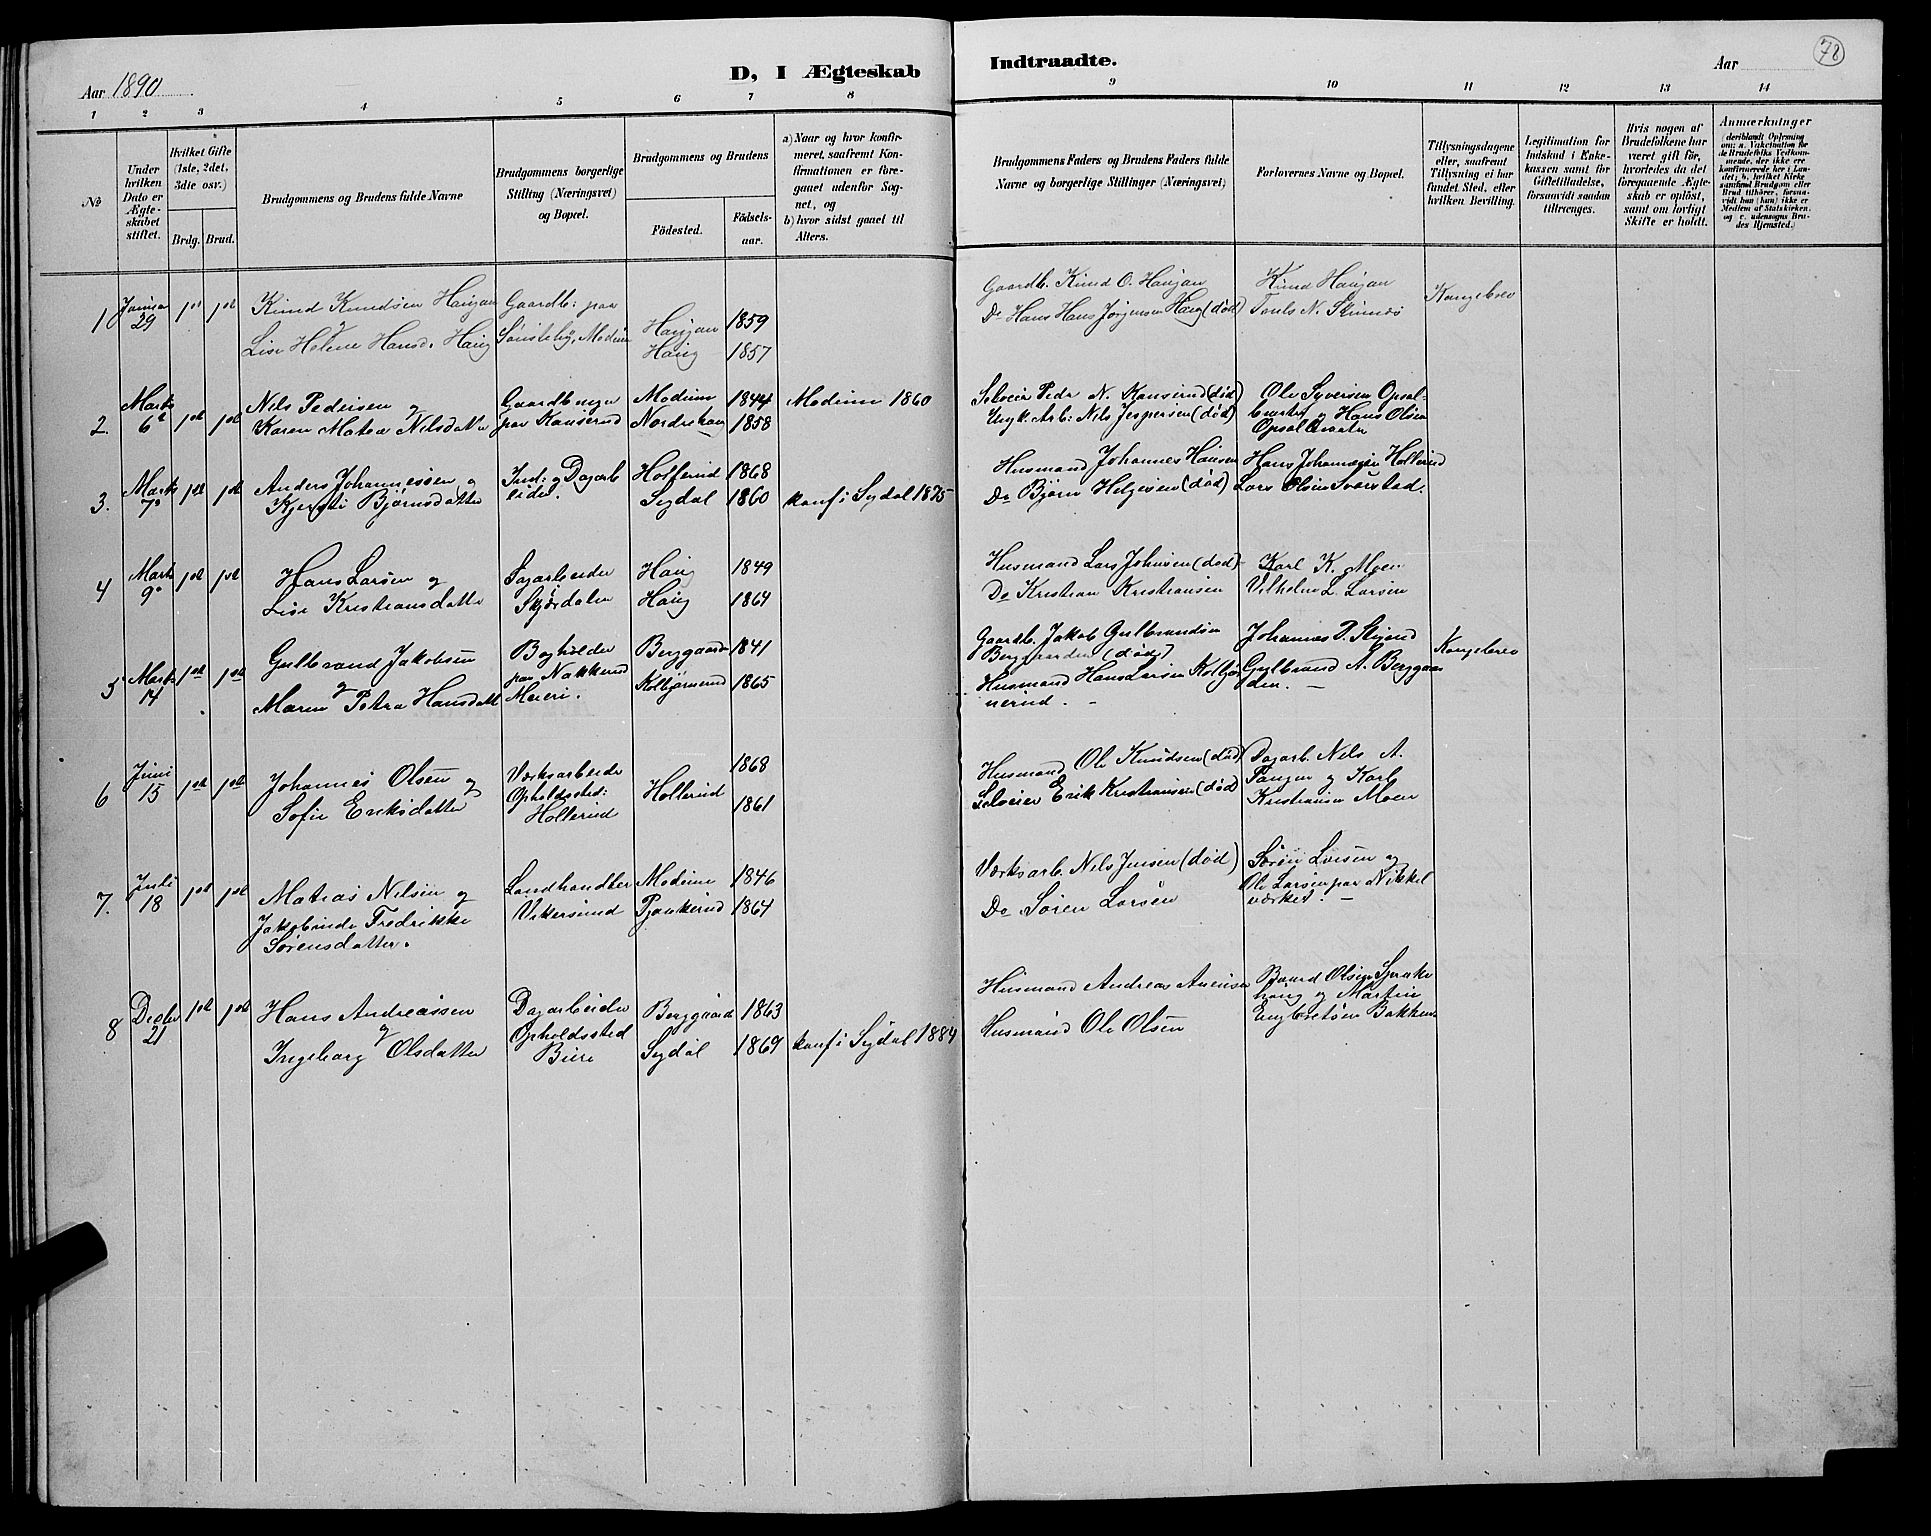 78
D, I Ægteskab Indtraadte.
Aar 1890
Aar
1 2 3 4 5 6 7 8 9 10 11 12 13 14
No
Under hvilken Dato er Ægteskabet stiftet.
Hvilket Gifte (1ste, 2det, 3die osv.)
Brdg. Brud.
Brudgommens og Brudens fulde Navne
Brudgommens borgerlige Stilling (Næringsvei) og Bopæl.
Brudgommens og Brudens
Födested.
Födselsaar.
a) Naar og hvor konfirmeret, saafremt Konfirmationen er foregaaet udenfor Sognet, og
b) hvor sidst gaaet til Alters.
Brudgommens Faders og Brudens Faders fulde Navne og borgerlige Stillinger (Næringsvei)
Forlovernes Navne og Bopæl.
Tillysningsdagene eller, saafremt Tillysning ei har fundet Sted, efter hvilken Bevilling.
Legitimation for Indskud i Enkekassen samt for Giftetilladelse, forsaavidt saadan tiltrænges.
Hvis nogen af Brudefolkene har været gift för, hvorledes da det foregaaende Ægteskab er oplöst, samt om lovligt Skifte er holdt.
Anmærkninger
1 Janua 29 1ste 1ste
Knud Knudsen Haugan
Lise Helene Hansd. Haug
Gaardb: paa
Modum
Haugan 1859
Haug 1857
Gaardb. Knud O. Haugan
Do Hans Hans Jørgensen Haug (død)
Knud Haugan
Kongebrev
2. Marts 6te
Nils Pedersen og
Karen Matea Nilsdatter
Gaardbruger
paa Kauserud
Modum 1844
Nordrehou 1858
Modum 1860
Selveier Peder N. Kauserud (død)
Ungk. Arb: Nils Jespersen (død)
Ole Syversen Opsal-
og Hans Olsen
3. Marts 7de
Anders Johannessen og
Kjersti Bjørnsdatter
Ind: og Dagarb
eider.
Hollerud 1868
Sigdal 1860
konf i Sigdal 1875
Husmand Johannes Hansen
Do Bjørn Helgesen (død)
Hans Johannesen Hollerud
Lars Olsen
4 Marts 9de
Hans Larsen og
Lise Kristiansdatter
Sagarbeider
Skjørdalen
Haug 1849
Haug 1864
Husmand Lars Johnsen (død)
Do Kristian Kristiansen
Karl K. Moen
Vilhelm L. Larsen
5 Marts 14
Gulbrand Jakobsen
og
Maren Petra Hansdatt
Bogholder
paa Nakkerud
Meieri.
Berggaarden 1841
Kolbjørnrud 1865
Gaardb. Jakob Gulbrandsen
Berggaarden (død)
Husmand Hans Larsen Kolbjør
nerud.
Johannes P.
Gulbrand A. Berggaar
den.
Kongebrev
6 Juni 15
Johannes Olsen og
Sofie Eriksdatter
Værksarbeider
Opholdssted:
Hollerud
Hollerud
1868
1861
Husmand Ole Knudsen (død)
Selveier Erik Kristiansen (død)
Dagarb. Nils A.
Tangen og Karl
Kristiansen Moen
7. Juli 18
Matias Nilsen og
Jakobinde Fredrikke
Sørensdatter.
Landhandler
Vikersund
Modum 1846
Pjaakerud 1864
Værksarb. Nils Jensen (død)
Do Søren Larsen
Søren Larsen og
Ole Larsen paa Nikkel
værket.
8 Decbr 21
Hans Andreassen
og
Ingeborg Olsdatter
Dagarbeider
Opholdssted
Berggaard 1863
Sigdal 1869
konf i Sigdal 1884
Husmand Andreas
Husmand Ole Olsen
Baard Olsen
og Martin
Engbretsen Bakken